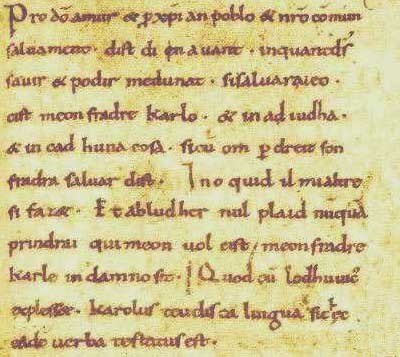 Pro dō amur & p xpīan poblo & nrō cōmun
saluament. dist dī en auant. inquantdˢ
sauir & podir medunat. sisaluaraieo.
cist meon fradre Karlo. & in ad iudha.
& in cad huna cosa. sicū om p dreit son
fradra saluar dist. Ino quid il mialtre
si faz&. Et abludher nul plaid nūquā
prindrai qui meon uol cist meonfradre
Karle in damno sit. Quod cū lodhuuic
explesset. Karolus teudisca lingua sic
eadē uerba testatus est.